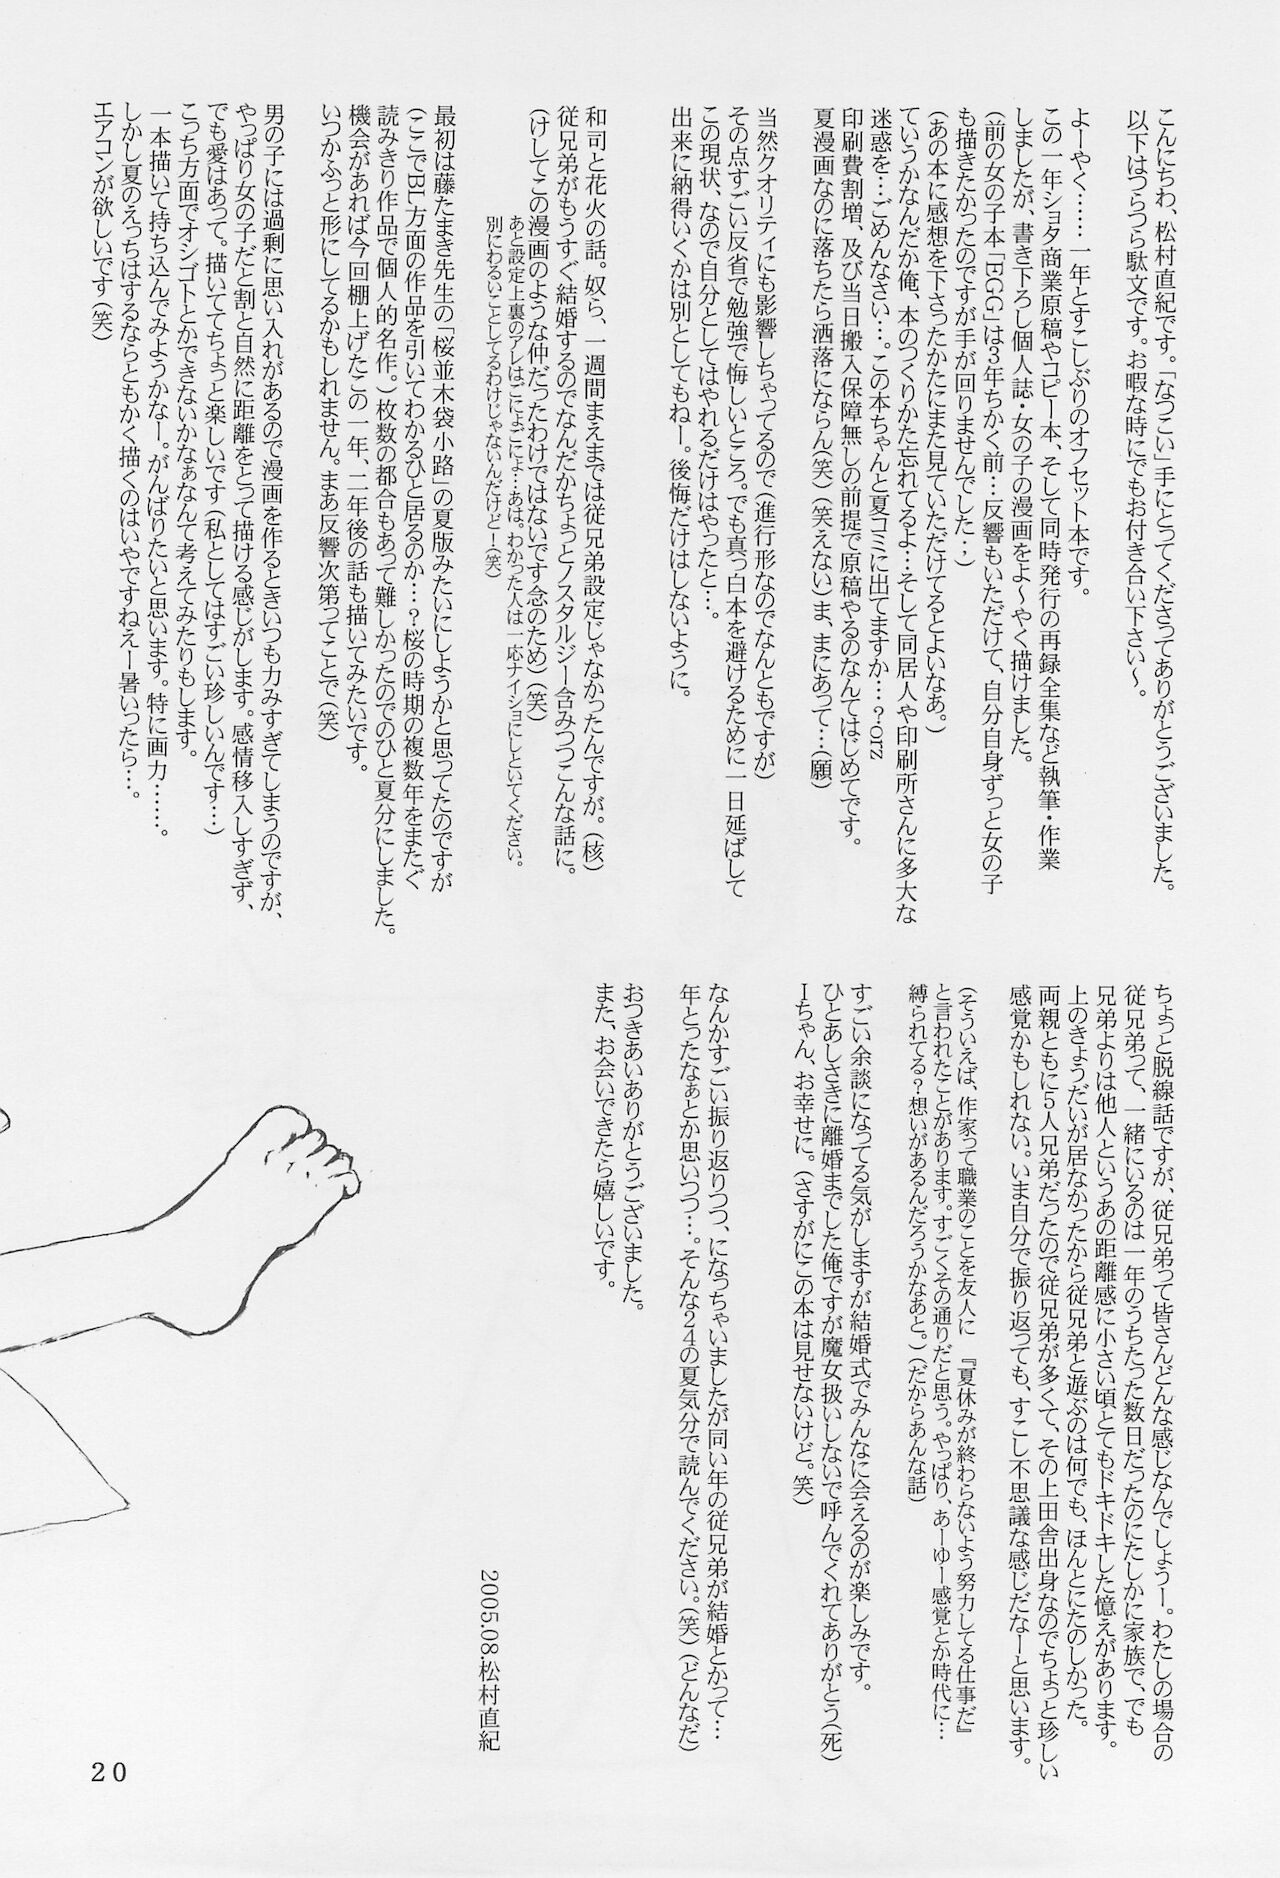 こんにちわ、松村直紀です。「なつこい」手にとってくださってありがとうございました。
以下はつらつら駄文です。お暇な時にでもお付き合い下さい～。
よーやく……一年とすこしぶりのオフセット本です。
この一年ショタ商業原稿やコピー本、そして同時発行の再録全集など執筆・作業
しましたが、書き下ろし個人誌・女の子の漫画をよ～やく描けました。
（前の女の子本「EGG」は3年ちかく前…反響もいただけて、自分自身ずっと女の子
も描きたかったのですが手が回りませんでした…）
（あの本に感想を下さったかたにまた見ていただけてるとよいなあ。）
ていうかなんだか俺、本のつくりかた忘れてるよ…そして同居人や印刷所さんに多大な
迷惑を…ごめんなさい…。この本ちゃんと夏コミに出てますか…？orz
印刷費割増、及び当日搬入保障無しの前提で原稿やるのなんてはじめてです。
夏漫画なのに落ちたら洒落にならん（笑）（笑えない）ま、まにあって……（願）
当然クオリティにも影響しちゃってるので（進行形なのでなんともですが）
その点すごい反省で勉強で悔しいところ。でも真っ白本を避けるために一日延ばして
この現状、なので自分としてはやれるだけはやったと…。
出来に納得いくかは別としてもねー。後悔だけはしないように。
和司と花火の話。奴ら、一週間まえまでは従兄弟設定じゃなかったんですが。（核）
従兄弟がもうすぐ結婚するのでなんだかちょっとノスタルジー含みつつこんな話に。
（けしてこの漫画のような仲だったわけではないです念のため）（笑）
あと設定上裏のアレはごにょごにょ…あは。わかった人は一応ナイショにしといてください。
別にわるいことしてるわけじゃないんだけど！（笑）
最初は藤たまき先生の「桜並木袋小路」の夏版みたいにしようかと思ってたのですが
（ここでBL方面の作品を引いてわかるひと居るのか…？桜の時期の複数年をまたぐ
読みきり作品で個人的名作。）枚数の都合もあって難しかったのでのひと夏分にしました。
機会があれば今回棚上げたこの一年、二年後の話も描いてみたいです。
いつかふっと形にしてるかもしれません。まあ反響次第ってことで（笑）
男の子には過剰に思い入れがあるので漫画を作るときいつも力みすぎてしまうのですが、
やっぱり女の子だと割と自然に距離をとって描ける感じがします。感情移入しすぎず、
でも愛はあって。描いててちょっと楽しいです（私としてはすごい珍しいんです…）
こっち方面でオシゴトとかできないかなぁなんて考えてみたりもします。
一本描いて持ち込んでみようかなー。がんばりたいと思います。特に画力……。
しかし夏のえっちはするならともかく描くのはいやですねえー暑いったら…。
エアコンが欲しいです（笑）
ちょっと脱線話ですが、従兄弟って皆さんどんな感じなんでしょうー。わたしの場合の
従兄弟って、一緒にいるのは一年のうちたった数日だったのにたしかに家族で、でも
兄弟よりは他人というあの距離感に小さい頃とてもドキドキした憶えがあります。
上のきょうだいが居なかったから従兄弟と遊ぶのは何でも、ほんとにたのしかった。
両親ともに5人兄弟だったので従兄弟が多くて、その上田舎出身なのでちょっと珍しい
感覚かもしれない。いま自分で振り返っても、すこし不思議な感じだなーと思います。
（そういえば、作家って職業のことを友人に 『夏休みが終わらないよう努力してる仕事だ』
と言われたことがあります。すごくその通りだと思う。やっぱり、あーゆー感覚とか時代に…
縛られてる？想いがあるんだろうかなあと。）（だからあんな話）
すごい余談になってる気がしますが結婚式でみんなに会えるのが楽しみです。
ひとあしさきに離婚までした俺ですが魔女扱いしないで呼んでくれてありがとう（死）
Iちゃん、お幸せに。（さすがにこの本は見せないけど。笑）
なんかすごい振り返りつつ、になっちゃいましたが同い年の従兄弟が結婚とかって…
年とったなぁとか思いつつ…。そんな24の夏気分で読んでください。（笑）（どんなだ）
おつきあいありがとうございました。
また、お会いできたら嬉しいです。
2005.08.松村直紀
20